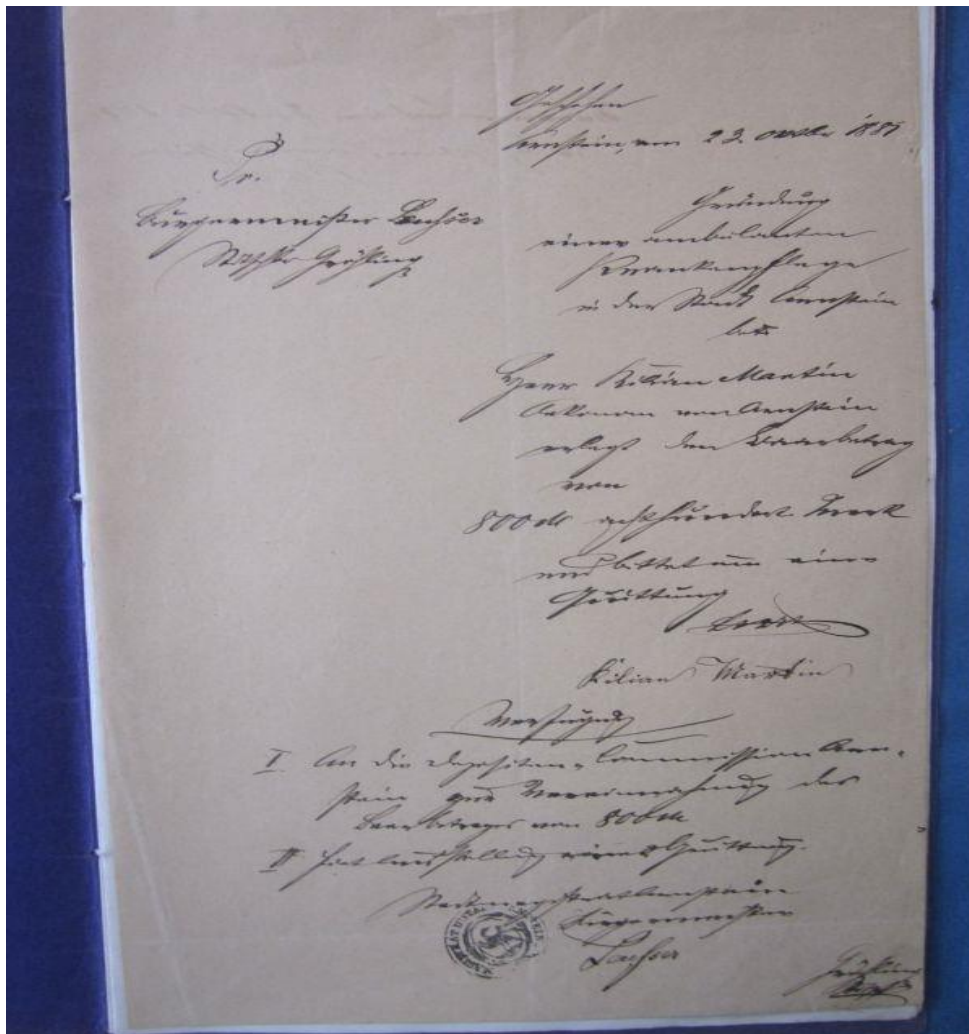 Geschehen
Arnstein, am 23. Oktbr 1881
Pr.
Bürgermeister Leußer
Stdtschr Gröhling
Gründung
einer ambulanten
Krankenpflege
in der Stadt Arnstein
betr
Herr Kilian Martin
Oekonom von Arnstein
erlegt den Baarbetrag
von
800 M achthundert Mark
und bittet um eine
Quittung
Kilian Martin
Verfügung
I. An die Depositen-Commission Arn-
stein zur Vereinnahmung des
Baarbetrages von 800 M
II
Stadtmagistrat Arnstein
Bürgermeister
Leußer